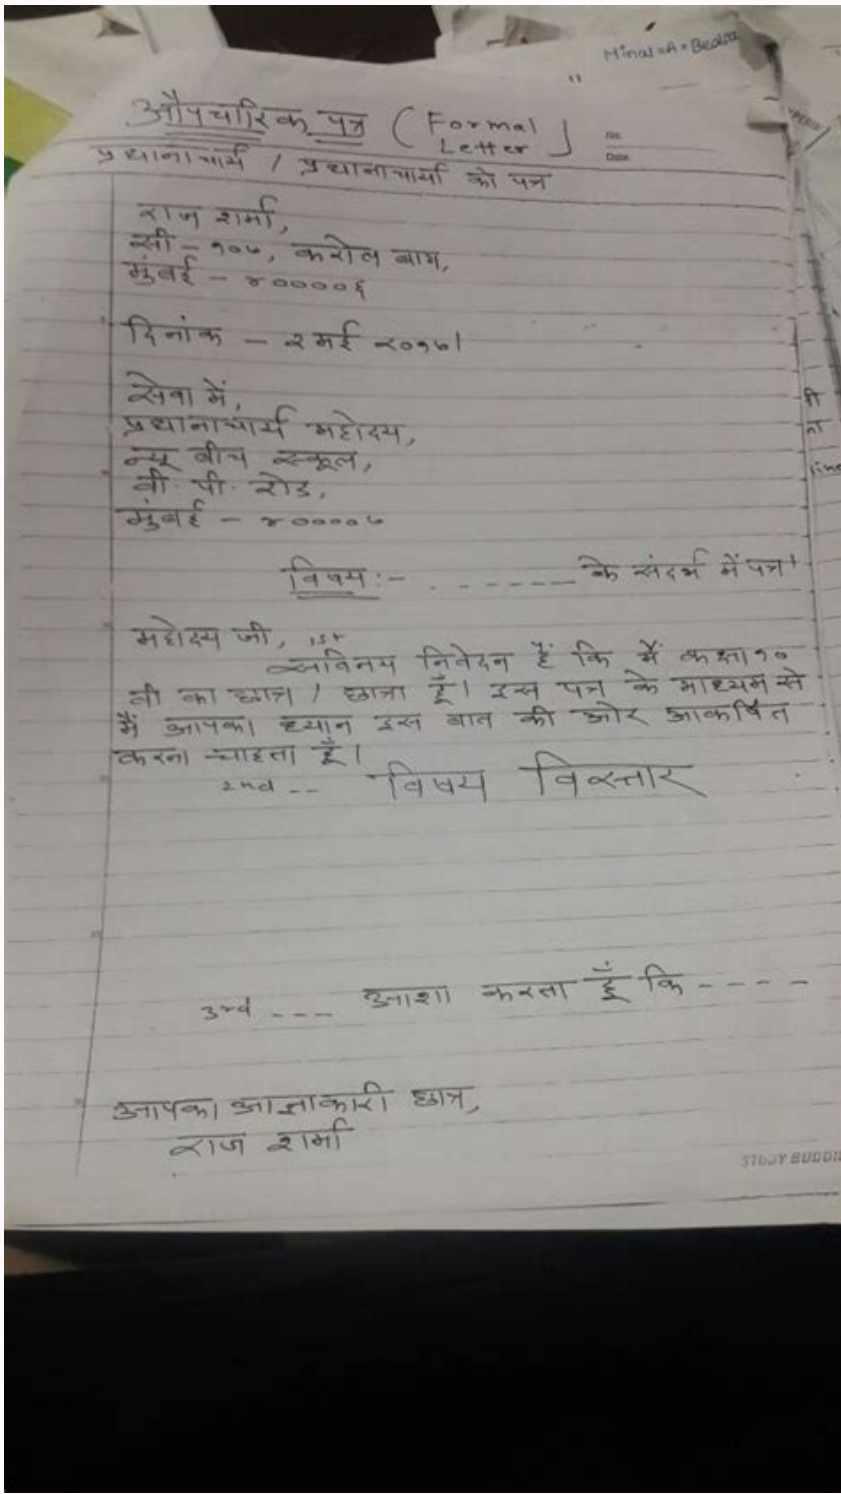 Minal • A • Bedia
"
औपचारिक पत्र ( Formal Letter )
No.
Date
प्रधानाचार्य / प्रधानाचार्या को पत्र
राज शर्मा,
सी - १०७, करोल बाग,
मुंबई - ४००००६
दिनांक - २ मई २०१७।
सेवा में,
प्रधानाचार्य महोदय,
न्यू बीच स्कूल,
वी. पी. रोड,
मुंबई - ४००००७
विषय :- - - - - - - - के संदर्भ में पत्र।
महोदय जी, 1st
सविनय निवेदन है कि मैं कक्षा १०
वी का छात्र / छात्रा हूँ। इस पत्र के माध्यम से
मैं आपका ध्यान इस बात की ओर आकर्षित
करना चाहता हूँ।
2nd -- विषय विस्तार
3rd --- आशा करता हूँ कि - - - -
आपका आज्ञाकारी छात्र,
राज शर्मा
STUDY BUDDI